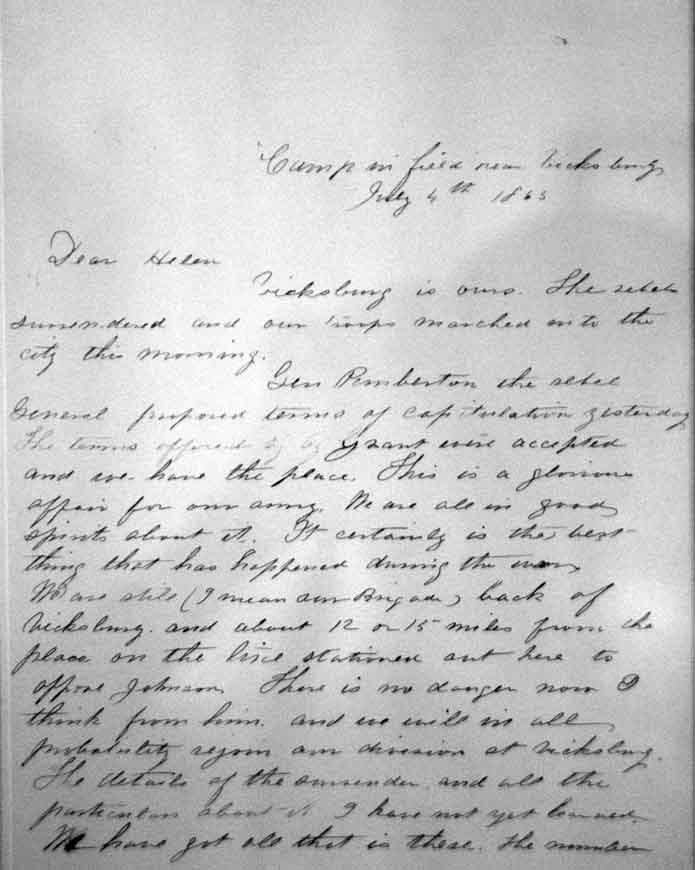 Camp in field near Vicksburg
July 4th 1863
Dear Helen
Vicksburg is ours. The rebels
surrendered and our troops marched into the
city this morning.
Gen Pemberton the rebel
General proposed terms of capitulation yesterday
The terms offered by Grant were accepted
and we have the place. This is a glorious
affair for our army. We are all in good
spirits about it. It certainly is the best
thing that has happened during the war.
We are still (I mean our Brigade) back of
Vicksburg and about 12 or 15 miles from the
place on the line stationed out here to
oppose Johnson. There is no danger now I
think from him. and we will in all
probability rejoin our division at Vicksburg.
The details of the surrender and all the
particulars about it I have not yet learned.
We have got all that is there. The number